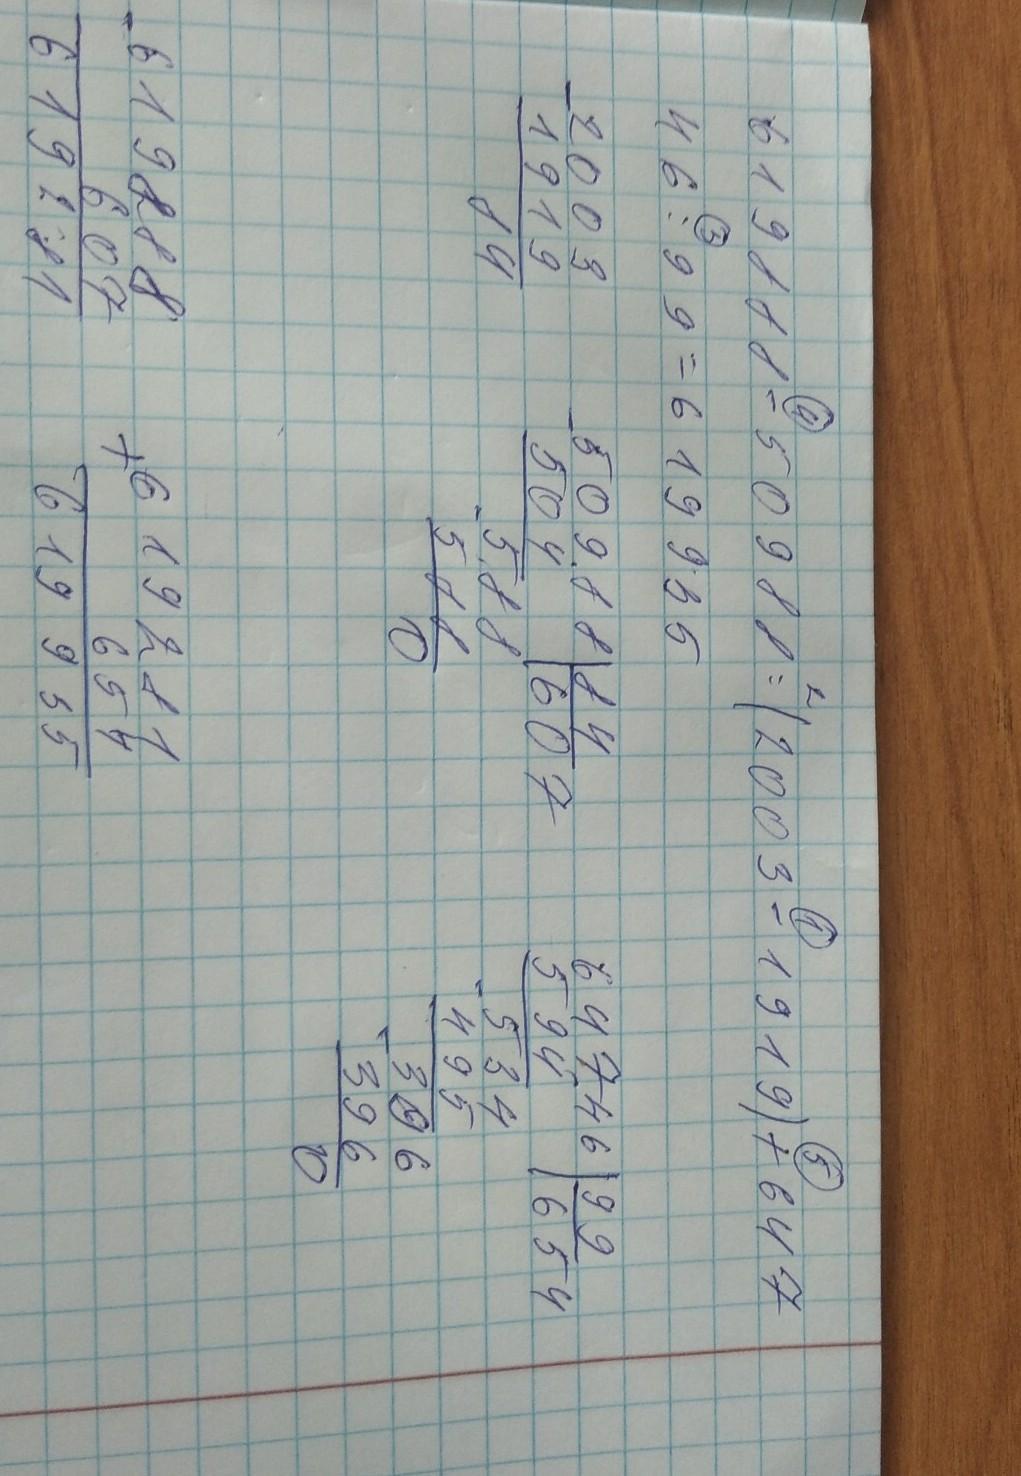 619888-50988:(2003-1919)+647
46:99=619935
④ 2 ① ⑤
③
-2003
1919
84
-50988|84
504 |607
-588
588
0
64746|99
594 |654
-534
495
-396
396
0
-619888
607
619281
+619281
654
619935